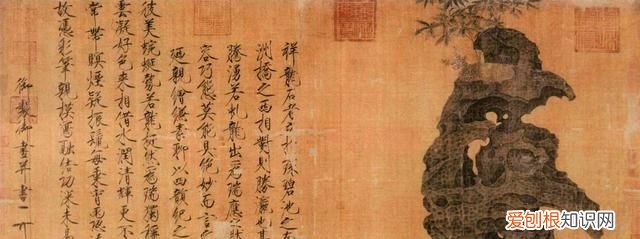 祥龍石者立於環碧池之
洲橋之西相對則勝瀛也其
騰湧若虬龍出為瑞應之狀
容巧態莫能具絕妙而言之
廼親繪縑素聊以四韻紀之
彼美蜿蜒勢若龍挺然為瑞獨稱
雲凝好色來相借水潤清輝更不
常帶暝煙疑振鬣每乘宵雨恐
故憑彩筆親模寫融結功深未易
御製御畫并書
爱刨根知识网